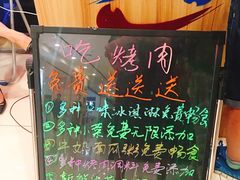 吃烤肉
免费 送送送
①多种口味冰淇淋免费畅食
②多种小菜免费无限添加
③牛奶南瓜粥免费畅食
④多种烤肉调料免费添加